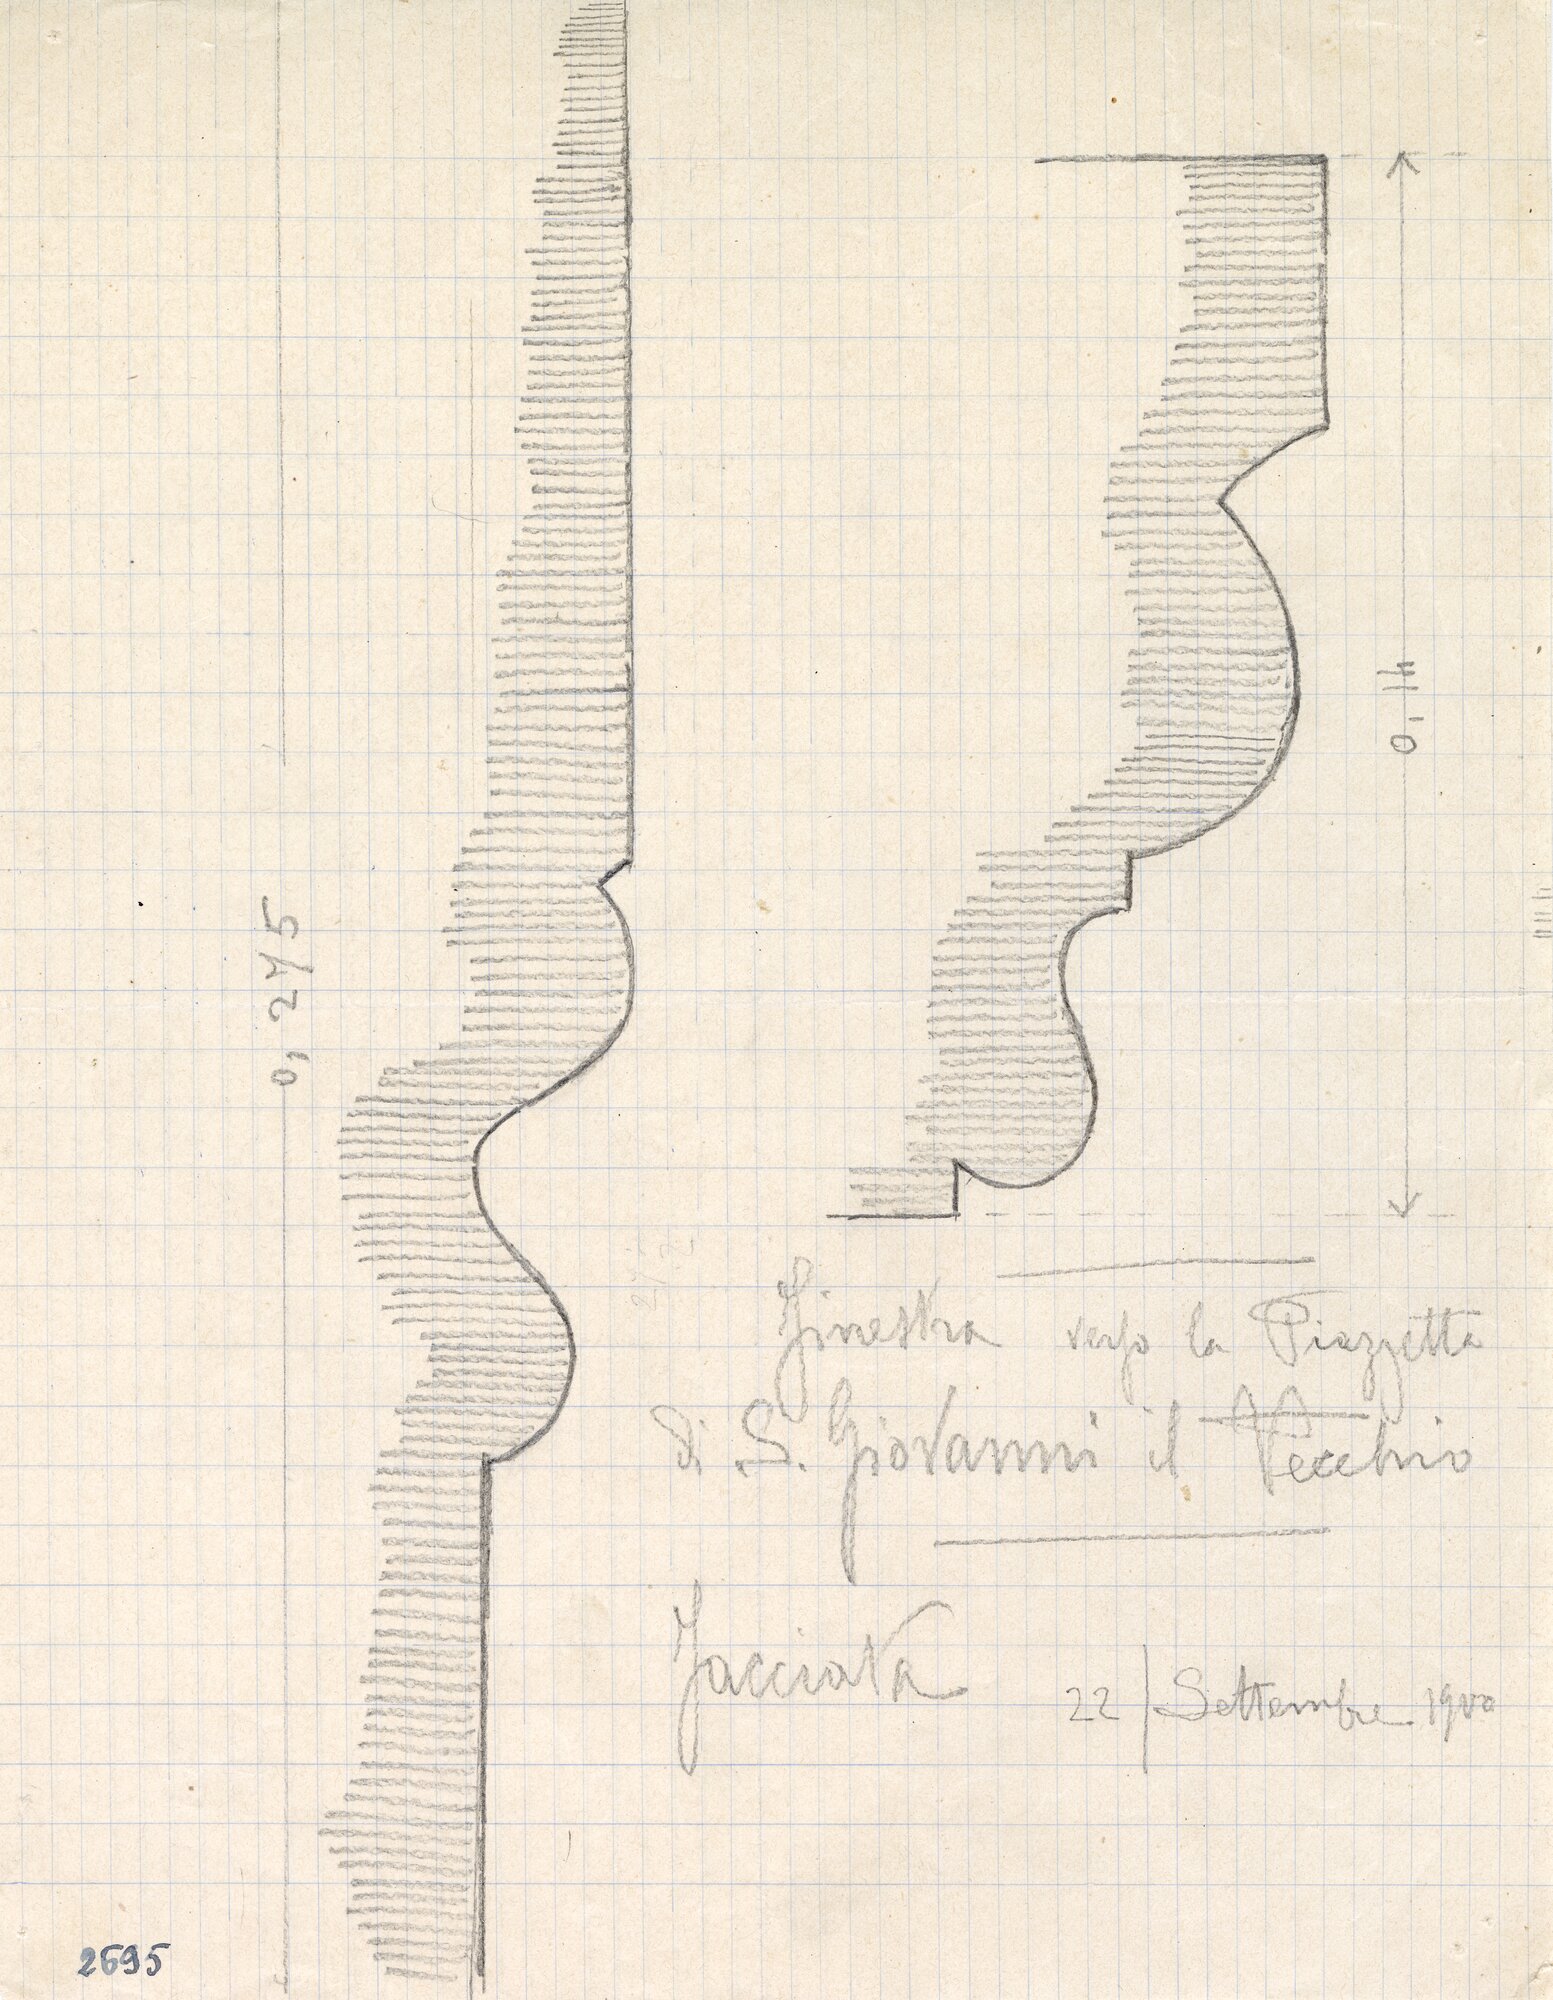 0,275
0,14
Finestra verso la Piazzetta
di S. Giovanni il Vecchio
Facciata
22 | Settembre 1900
2695